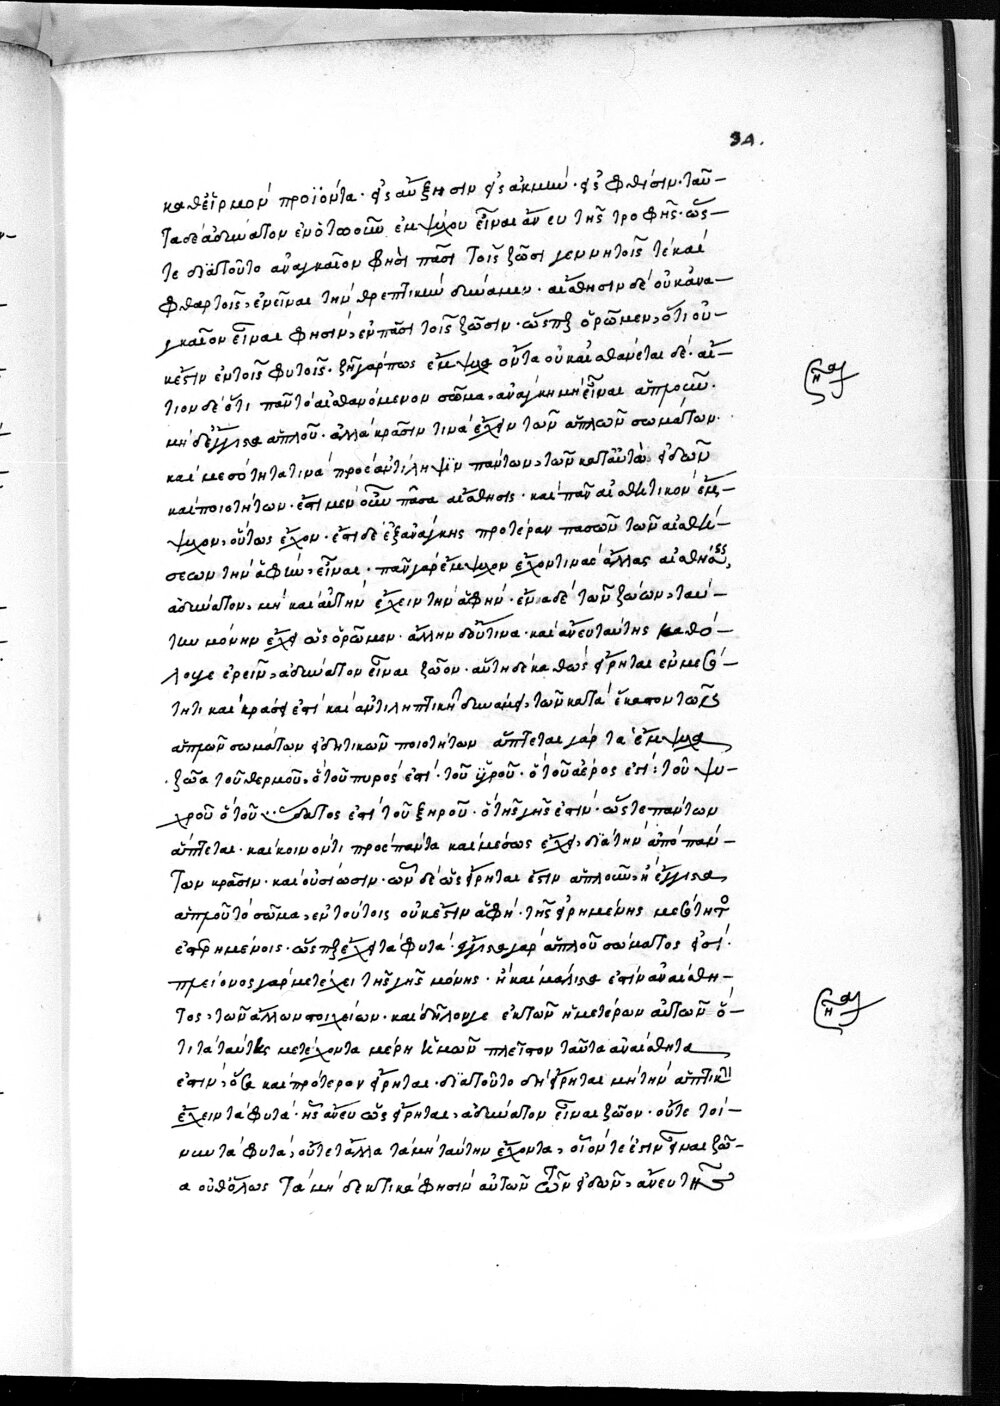 34.
καθειρμὸν προϊόντα· εἰς αὔξησιν εἰς ἀκμὴν· εἰς φθίσιν· ταῦ-
τα δὲ ἀδύνατον ἐν ὁτῳοῦν ἐμψύχῳ εἶναι ἄνευ τῆς τροφῆς· ὥς-
τε διὰ τοῦτο ἀναγκαῖον φησὶ πᾶσι τοῖς ζῶσι γεννητοῖς τὲ καὶ
φθαρτοῖς, ἐνεῖναι τὴν θρεπτικὴν δύναμιν· αἴσθησιν δὲ οὐκ ἀνα-
γκαῖον εἶναι φησὶν, ἐν πᾶσι τοῖς ζῶσιν· ὥσπερ ὁρῶμεν, ὅτι οὐ-
κ ἔστιν ἐν τοῖς φυτοῖς· ζῆ γάρ πως ἔμψυχα ὄντα οὐκ αἰσθάνεται δέ· αἴ-
τιον δὲ ὅτι πᾶν τὸ αἰσθανόμενον σῶμα, ἀνάγκη μὴ εἶναι ἁπλοῦν·
μὴ δ' ἔγγιστα ἁπλοῦ· ἀλλὰ κρᾶσιν τινὰ ἔχειν τῶν ἁπλῶν σωμάτων·
καὶ μεσότητα τινὰ πρὸς ἀντίληψιν πάντων, τῶν κατ' αὐτὰ εἰδῶν
καὶ ποιοτήτων· ἔστι μὲν οὖν πᾶσα αἴσθησις· καὶ πᾶν αἰσθητικὸν ἔμ-
ψυχον, οὕτως ἔχον· ἔστι δὲ ἐξ ἀνάγκης προτέραν πασῶν τῶν αἰσθή-
σεων τὴν ἁφὴν, εἶναι· πᾶν γὰρ ἔμψυχον ἔχον τινὰς ἄλλας αἰσθήσεις,
ἀδύνατον, μὴ καὶ αὐτὴν ἔχειν τὴν ἁφήν· ἔνια δὲ τῶν ζώων, ταύ-
την μόνην ἔχει ὡς ὁρῶμεν· ἄλλην δ' οὔτινα· καὶ ἄνευ ταύτης καθό-
λου γε ἐρεῖν, ἀδύνατον εἶναι ζῶον· αὕτη δὲ καθὼς εἴρηται ἐν μεσό-
τητι καὶ κράσει ἐστὶ καὶ ἀντιληπτικὴ δυνάμει, τῶν καθ' ἕκαστον τῶν
ἁπλῶν σωμάτων εἰδητικῶν ποιοτήτων ἅπτεται γὰρ τὰ ἔμψυχα
ζῶα τοῦ θερμοῦ, ὃ τοῦ πυρὸς ἐστί· τοῦ ὑγροῦ· ὃ τοῦ ἀέρος ἐστί: τοῦ ψυ-
χροῦ ὃ τοῦ ὕδατος ἐστὶ τοῦ ξηροῦ· ὃ τῆς γῆς ἐστίν· ὥστε πάντων
ἅπτεται· καὶ κοινόν τι πρὸς πάντα καὶ μέσως ἔχει, διὰ τὴν ἀπὸ πάν-
των κρᾶσιν· καὶ οὐσίωσιν· ὧν δὲ ὡς εἴρηται ἔστιν ἁπλοῦν, ἢ ἔγγιστα
ἁπλοῦ τὸ σῶμα, ἐν τούτοις οὐκ ἔστιν ἁφὴ· τῆς εἰρημένης μεσότητος
ἐστερημένοις· ὥσπερ ἔχει τὰ φυτά· ἔγγιστα γὰρ ἁπλοῦ σώματος ἐστί·
πλείονος γὰρ μετέχει τῆς γῆς μόνης· ἣ καὶ μάλιστα ἐστὶν ἀναίσθη-
τος, τῶν ἄλλων στοιχείων· καὶ δῆλόν γε ἐκ τῶν ἡμετέρων αὐτῶν ὅ-
τι τὰ ταύτης μετέχοντα μέρη ἡμῶν πλεῖστον ταῦτα ἀναίσθητα
ἐστὶν, ὃ καὶ πρότερον εἴρηται· διὰ τοῦτο δὴ εἴρηται μὴ τὴν ἁπτικὴν
ἔχειν τὰ φυτά· ἧς ἄνευ ὡς εἴρηται, ἀδύνατον εἶναι ζῶον· οὔτε τοί-
νυν τὰ φυτὰ, οὔτε τἄλλα τὰ μὴ ταύτην ἔχοντα, οἷόν τε ἐστὶν εἶναι ζῶ-
α οὔθ' ὅλως τὰ μὴ δεκτικὰ φησὶν αὐτῶν τῶν εἰδῶν, ἄνευ τῆς